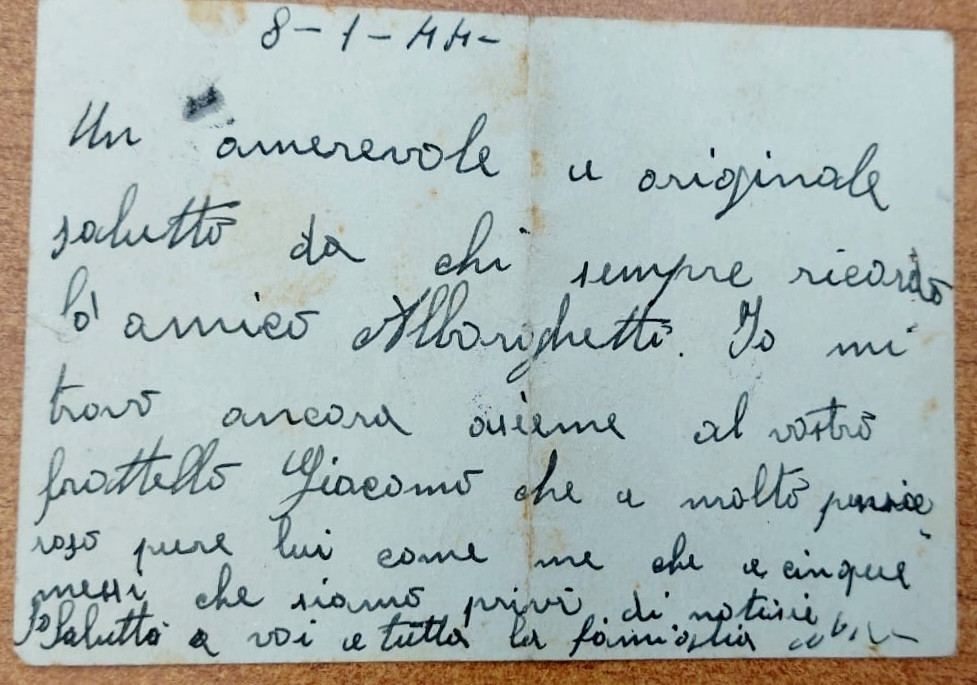 8-1-44-
Un amerevole e originale
salutto da chi sempre ricordo
lo' amico Alborghetti. Io mi
trovo ancora asieme al vostro
frattello Giacomo che e molto pensie
roso pure lui come me che e cinque
messi che siamo privi di notisie
Salutto a voi e tutta la famiglia